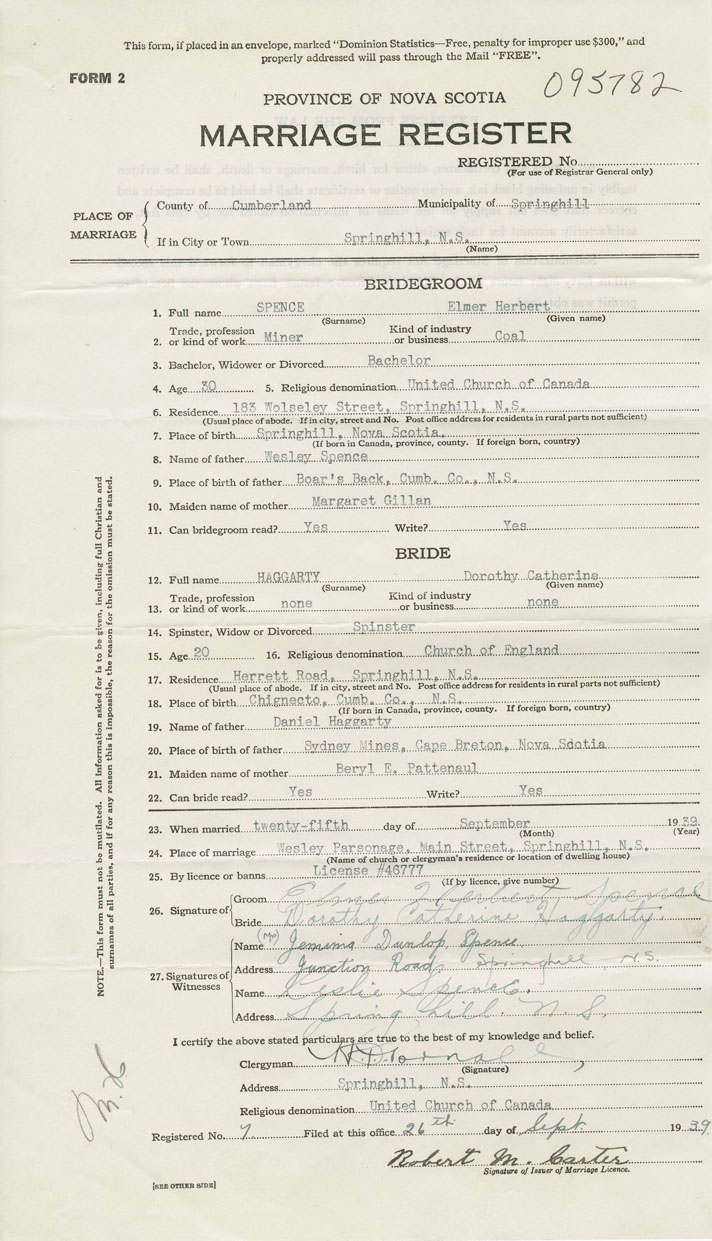 This form, if placed in an envelope, marked "Dominion Statistics—Free, penalty for improper use $300," and
properly addressed will pass through the Mail "FREE".
FORM 2
095782
PROVINCE OF NOVA SCOTIA
MARRIAGE REGISTER
REGISTERED No.
(For use of Registrar General only)
PLACE OF MARRIAGE
County of Cumberland Municipality of Springhill
If in City or Town Springhill, N.S.
(Name)
BRIDEGROOM
1. Full name SPENCE Elmer Herbert
(Surname) (Given name)
2. Trade, profession or kind of work Miner Kind of industry or business Coal
3. Bachelor, Widower or Divorced Bachelor
4. Age 30 5. Religious denomination United Church of Canada
6. Residence 183 Wolseley Street, Springhill, N.S.
(Usual place of abode. If in city, street and No. Post office address for residents in rural parts not sufficient)
7. Place of birth Springhill, Nova Scotia.
(If born in Canada, province, county. If foreign born, country)
8. Name of father Wesley Spence
9. Place of birth of father Boar's Back, Cumb. Co., N.S.
10. Maiden name of mother Margaret Gillan
11. Can bridegroom read? Yes Write? Yes
BRIDE
12. Full name HAGGARTY Dorothy Catherine
(Surname) (Given name)
13. Trade, profession or kind of work none Kind of industry or business none
14. Spinster, Widow or Divorced Spinster
15. Age 20 16. Religious denomination Church of England
17. Residence Herrett Road, Springhill, N.S.
(Usual place of abode. If in city, street and No. Post office address for residents in rural parts not sufficient)
18. Place of birth Chignecto, Cumb. Co., N.S.
(If born in Canada, province, county. If foreign born, country)
19. Name of father Daniel Haggarty
20. Place of birth of father Sydney Mines, Cape Breton, Nova Scotia
21. Maiden name of mother Beryl E. Pattenaul
22. Can bride read? Yes Write? Yes
23. When married twenty-fifth day of September 1939
(Month) (Year)
24. Place of marriage Wesley Parsonage, Main Street, Springhill, N.S.
(Name of church or clergyman's residence or location of dwelling house)
25. By licence or banns License #46777
(If by licence, give number)
26. Signature of
Groom Elmer Herbert Spence
Bride Dorothy Catherine Haggarty.
27. Signatures of Witnesses
Name (Mrs) Jemima Dunlop Spence
Address Junction Road, Springhill N.S.
Name Leslie Spence.
Address Spring hill. N.S.
I certify the above stated particulars are true to the best of my knowledge and belief.
Clergyman
(Signature)
Address Springhill, N.S.
Religious denomination United Church of Canada
Registered No. 7 Filed at this office 26th day of Sept 1939
Robert M. Carter
Signature of Issuer of Marriage Licence.
[SEE OTHER SIDE]
NOTE.—This form must not be mutilated. All Information asked for is to be given, including full Christian and
surnames of all parties, and if for any reason this is impossible, the reason for the omission must be stated.